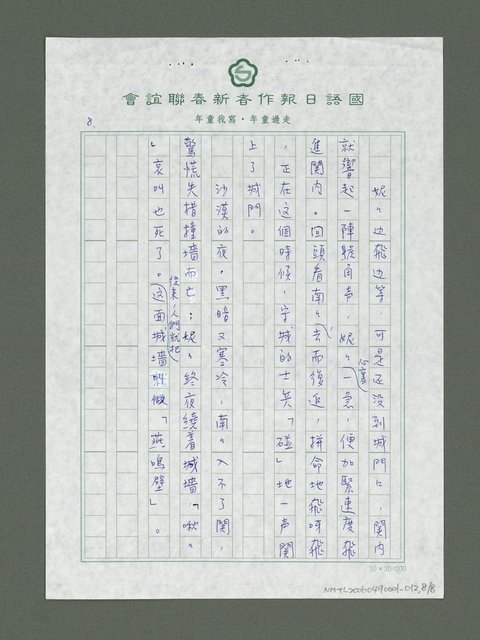 國語日報作者新春聯誼會
走過童年・寫我童年
8.
妮々边飛边等，可是还没到城門口，関内
就響起一陣號角声，妮々心裏一急，便加緊速度飛
進関内。回頭看南々去而復返，拼命地飛呀飛
，正在这個時候，守城的士兵「碰」地一声関
上了城門。
沙漠的夜，黑暗又寒冷，南々入不了関，
驚慌失措撞墻而亡；妮々終夜繞着城墻「啾々
」哀叫也死了。後來，人們就把这面城墻叫做「燕鳴壁」。
10×20=200
NMTL20060490001-012,8/8